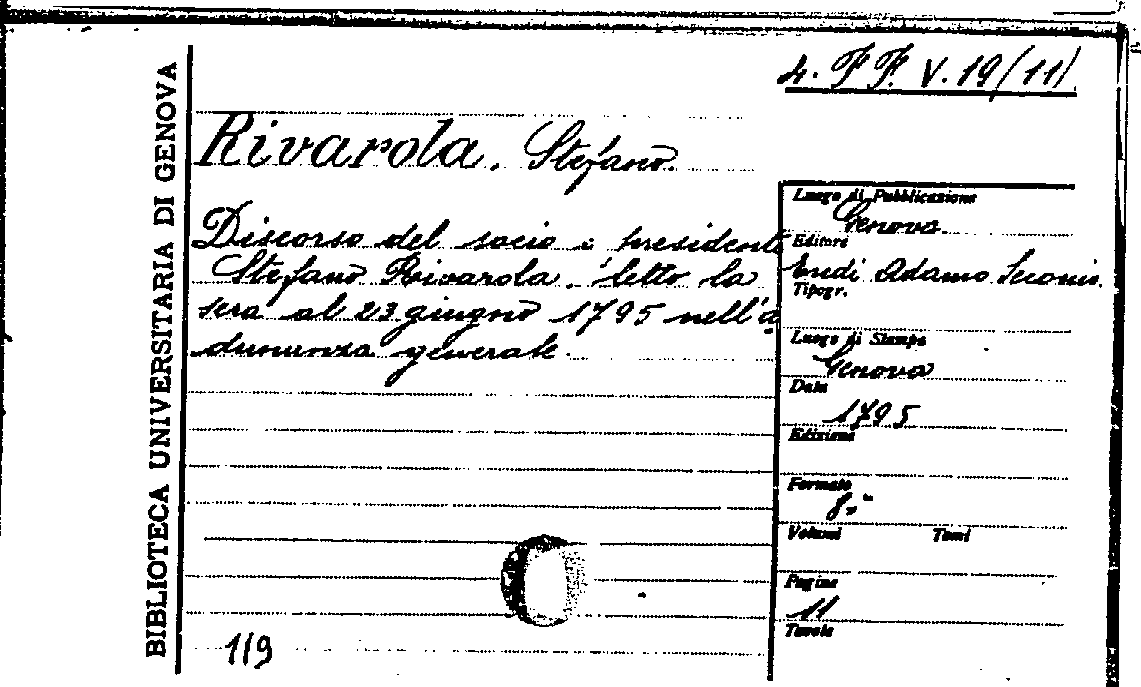 4. FF. V. 19/(11)
BIBLIOTECA UNIVERSITARIA DI GENOVA
Rivarola. Stefano.
Discorso del socio e presidente
Stefano Rivarola. letto la
sera al 23 giugno 1795 nell'a
dunanza generale.
119
Luogo di Pubblicazione
Genova
Editore
Eredi Adamo Scionis.
Tipogr.
Luogo di Stampa
Genova
Data
1795
Edizione
Formato
8.°
Volumi Tomi
Pagine
11
Tavole